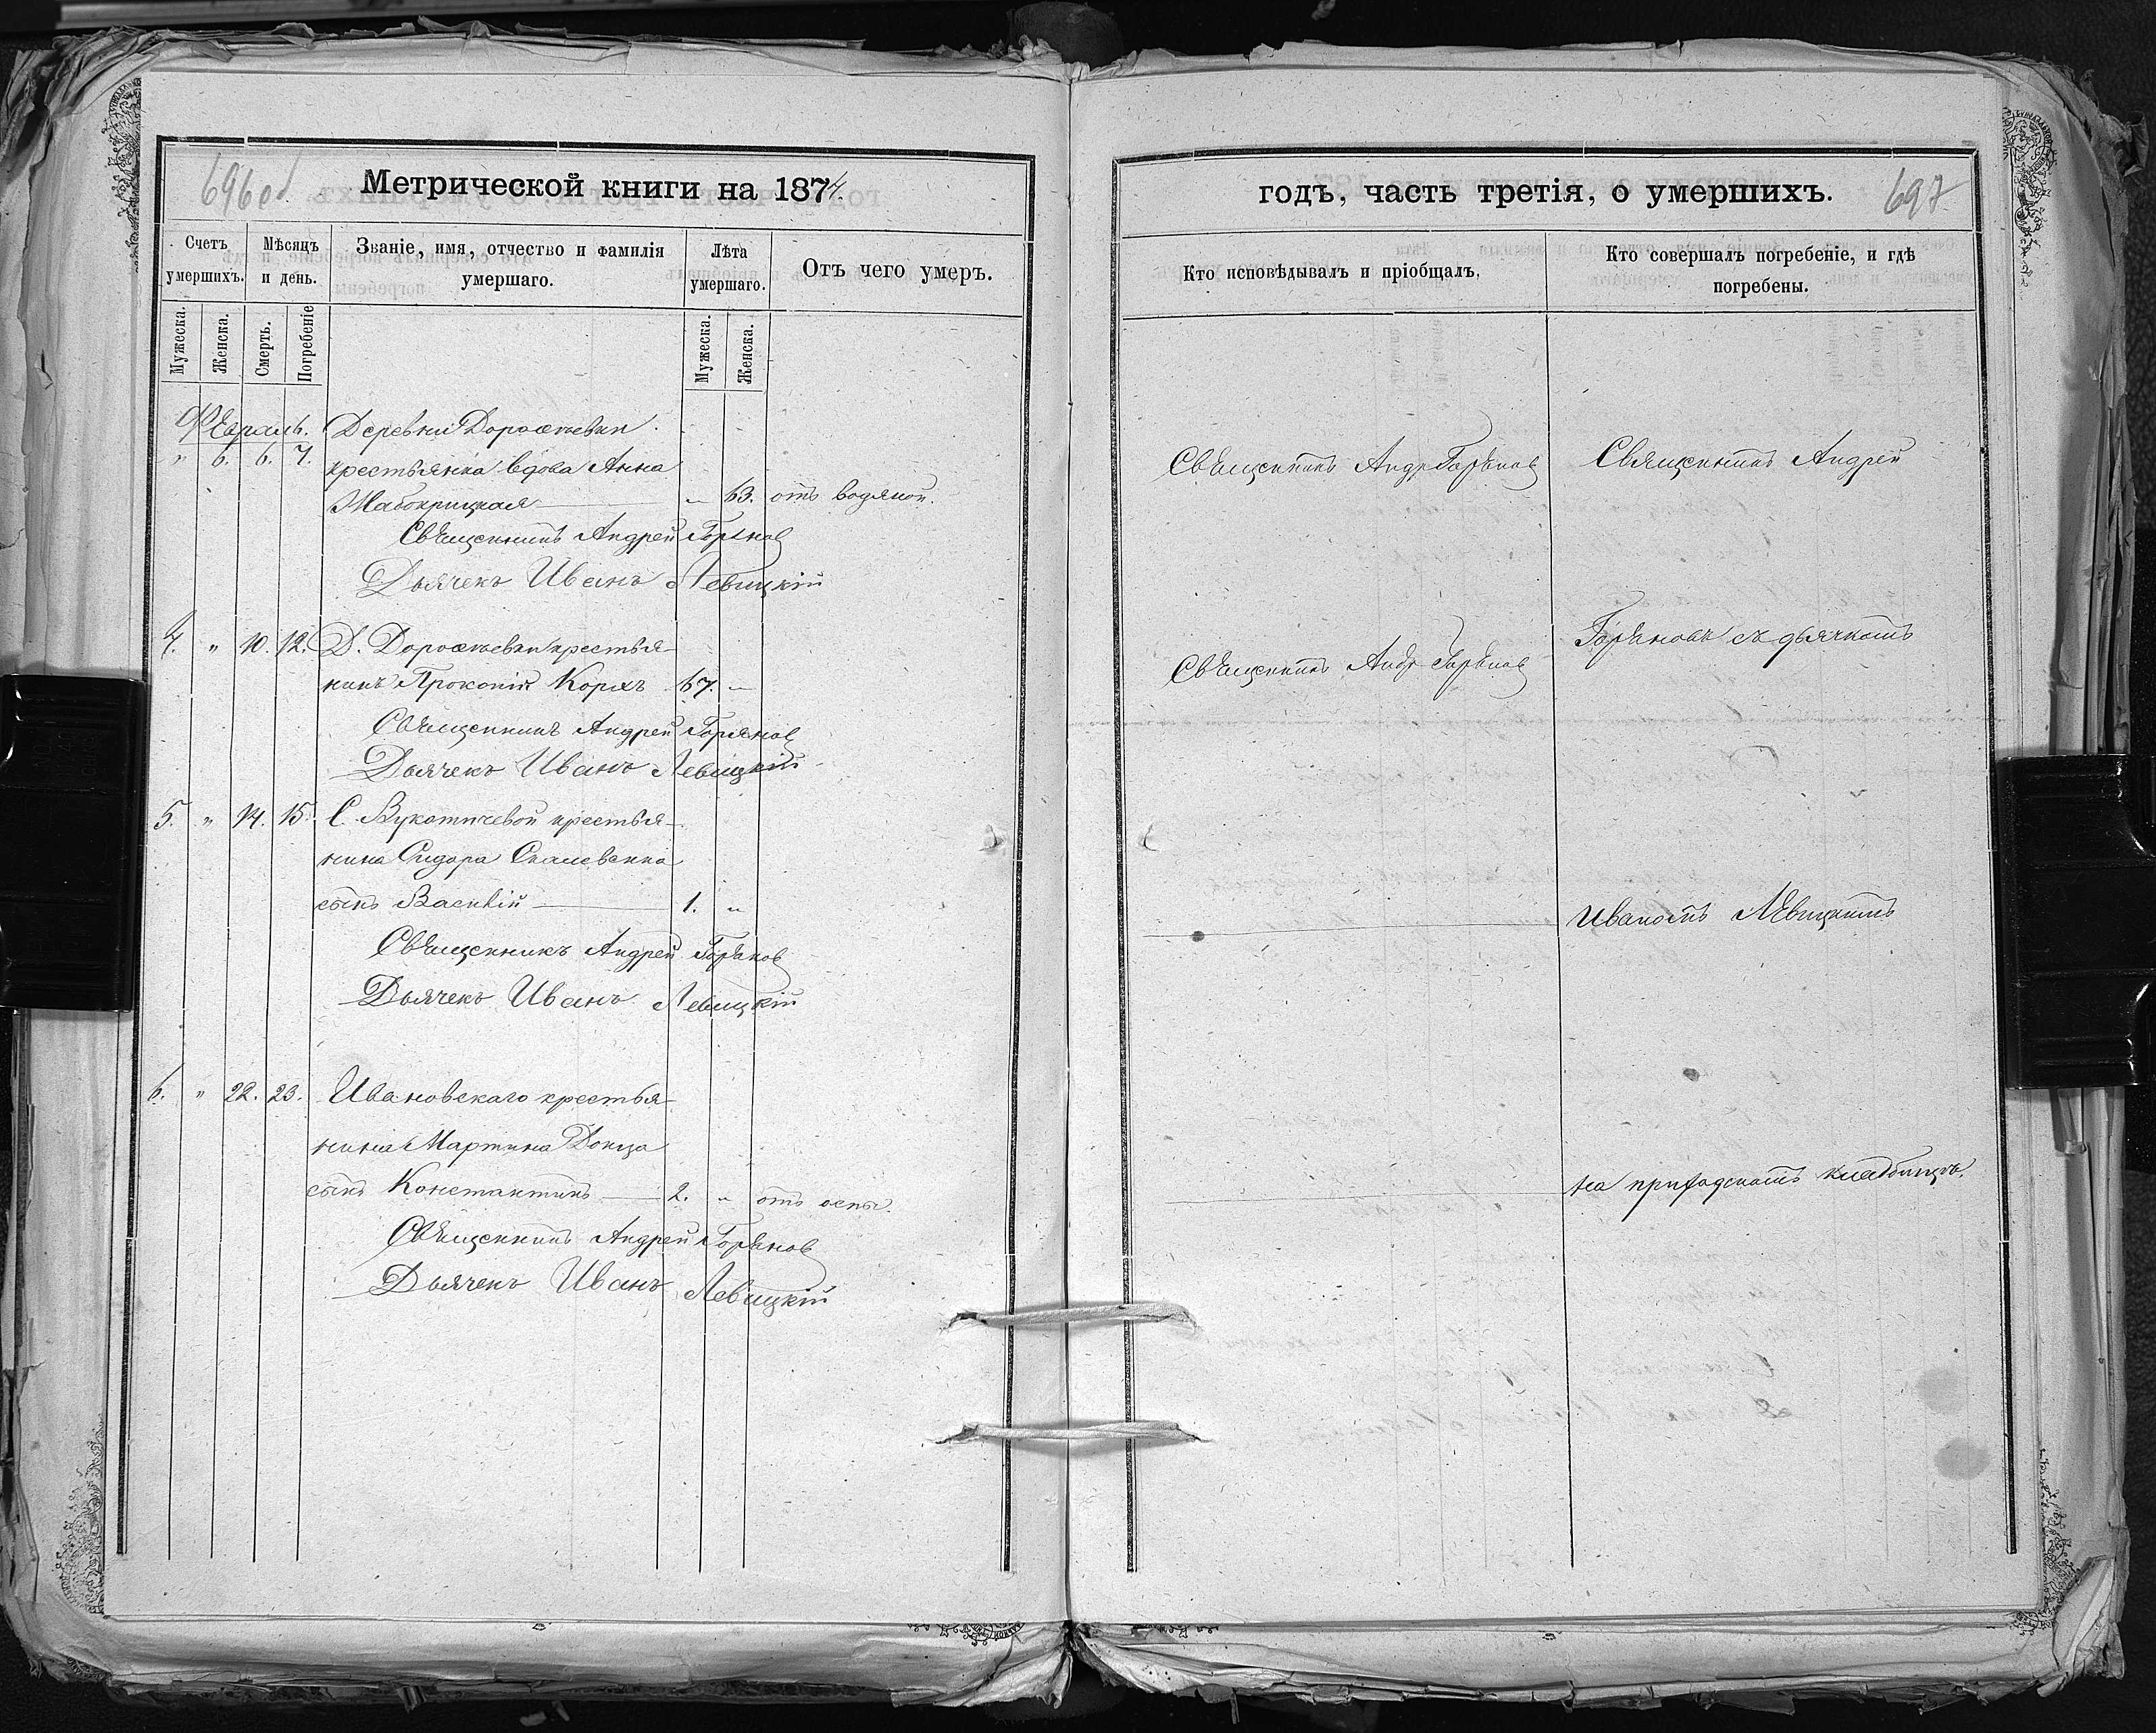 696 об.
Метрической книги на 1874.
Счетъ умершихъ.
Мѣсяцъ и день.
Званіе, имя, отчество и фамилія умершаго.
Лѣта умершаго.
Отъ чего умеръ.
Мужеска.
Женска.
Смерть.
Погребеніе
Мужеска.
Женска.
Февраль. Деревни
" 6. 6. 7. крестьянка вдова Анна
" 63. отъ водяной.
Священникъ Андрей Горяновъ
Дьячекъ Иванъ Левицкій
4. " 10. 12. Д. крестья-
нинъ Прокопій Коржъ 67. "
Священникъ Андрей Горяновъ
Дьячекъ Иванъ Левицкій
5. " 14. 15. С. Вукотичевой крестья-
нина Сидора
сынъ Василій 1. "
Священникъ Андрей Горяновъ
Дьячекъ Иванъ Левицкій
6. " 22. 23. Ивановскаго крестья-
нина Мартина Донца
сынъ Константинъ 2. " отъ оспы.
Священникъ Андрей Горяновъ
Дьячекъ Иванъ Левицкій
годъ, часть третія, о умершихъ.
697
Кто исповѣдывалъ и пріобщалъ.
Кто совершалъ погребеніе, и гдѣ погребены.
Священникъ Андр Горяновъ
Священникъ Андрей
Священникъ Андр Горяновъ
Горяновъ съ дьячкомъ
Иваномъ Левицкимъ
на приходскомъ кладбищѣ.